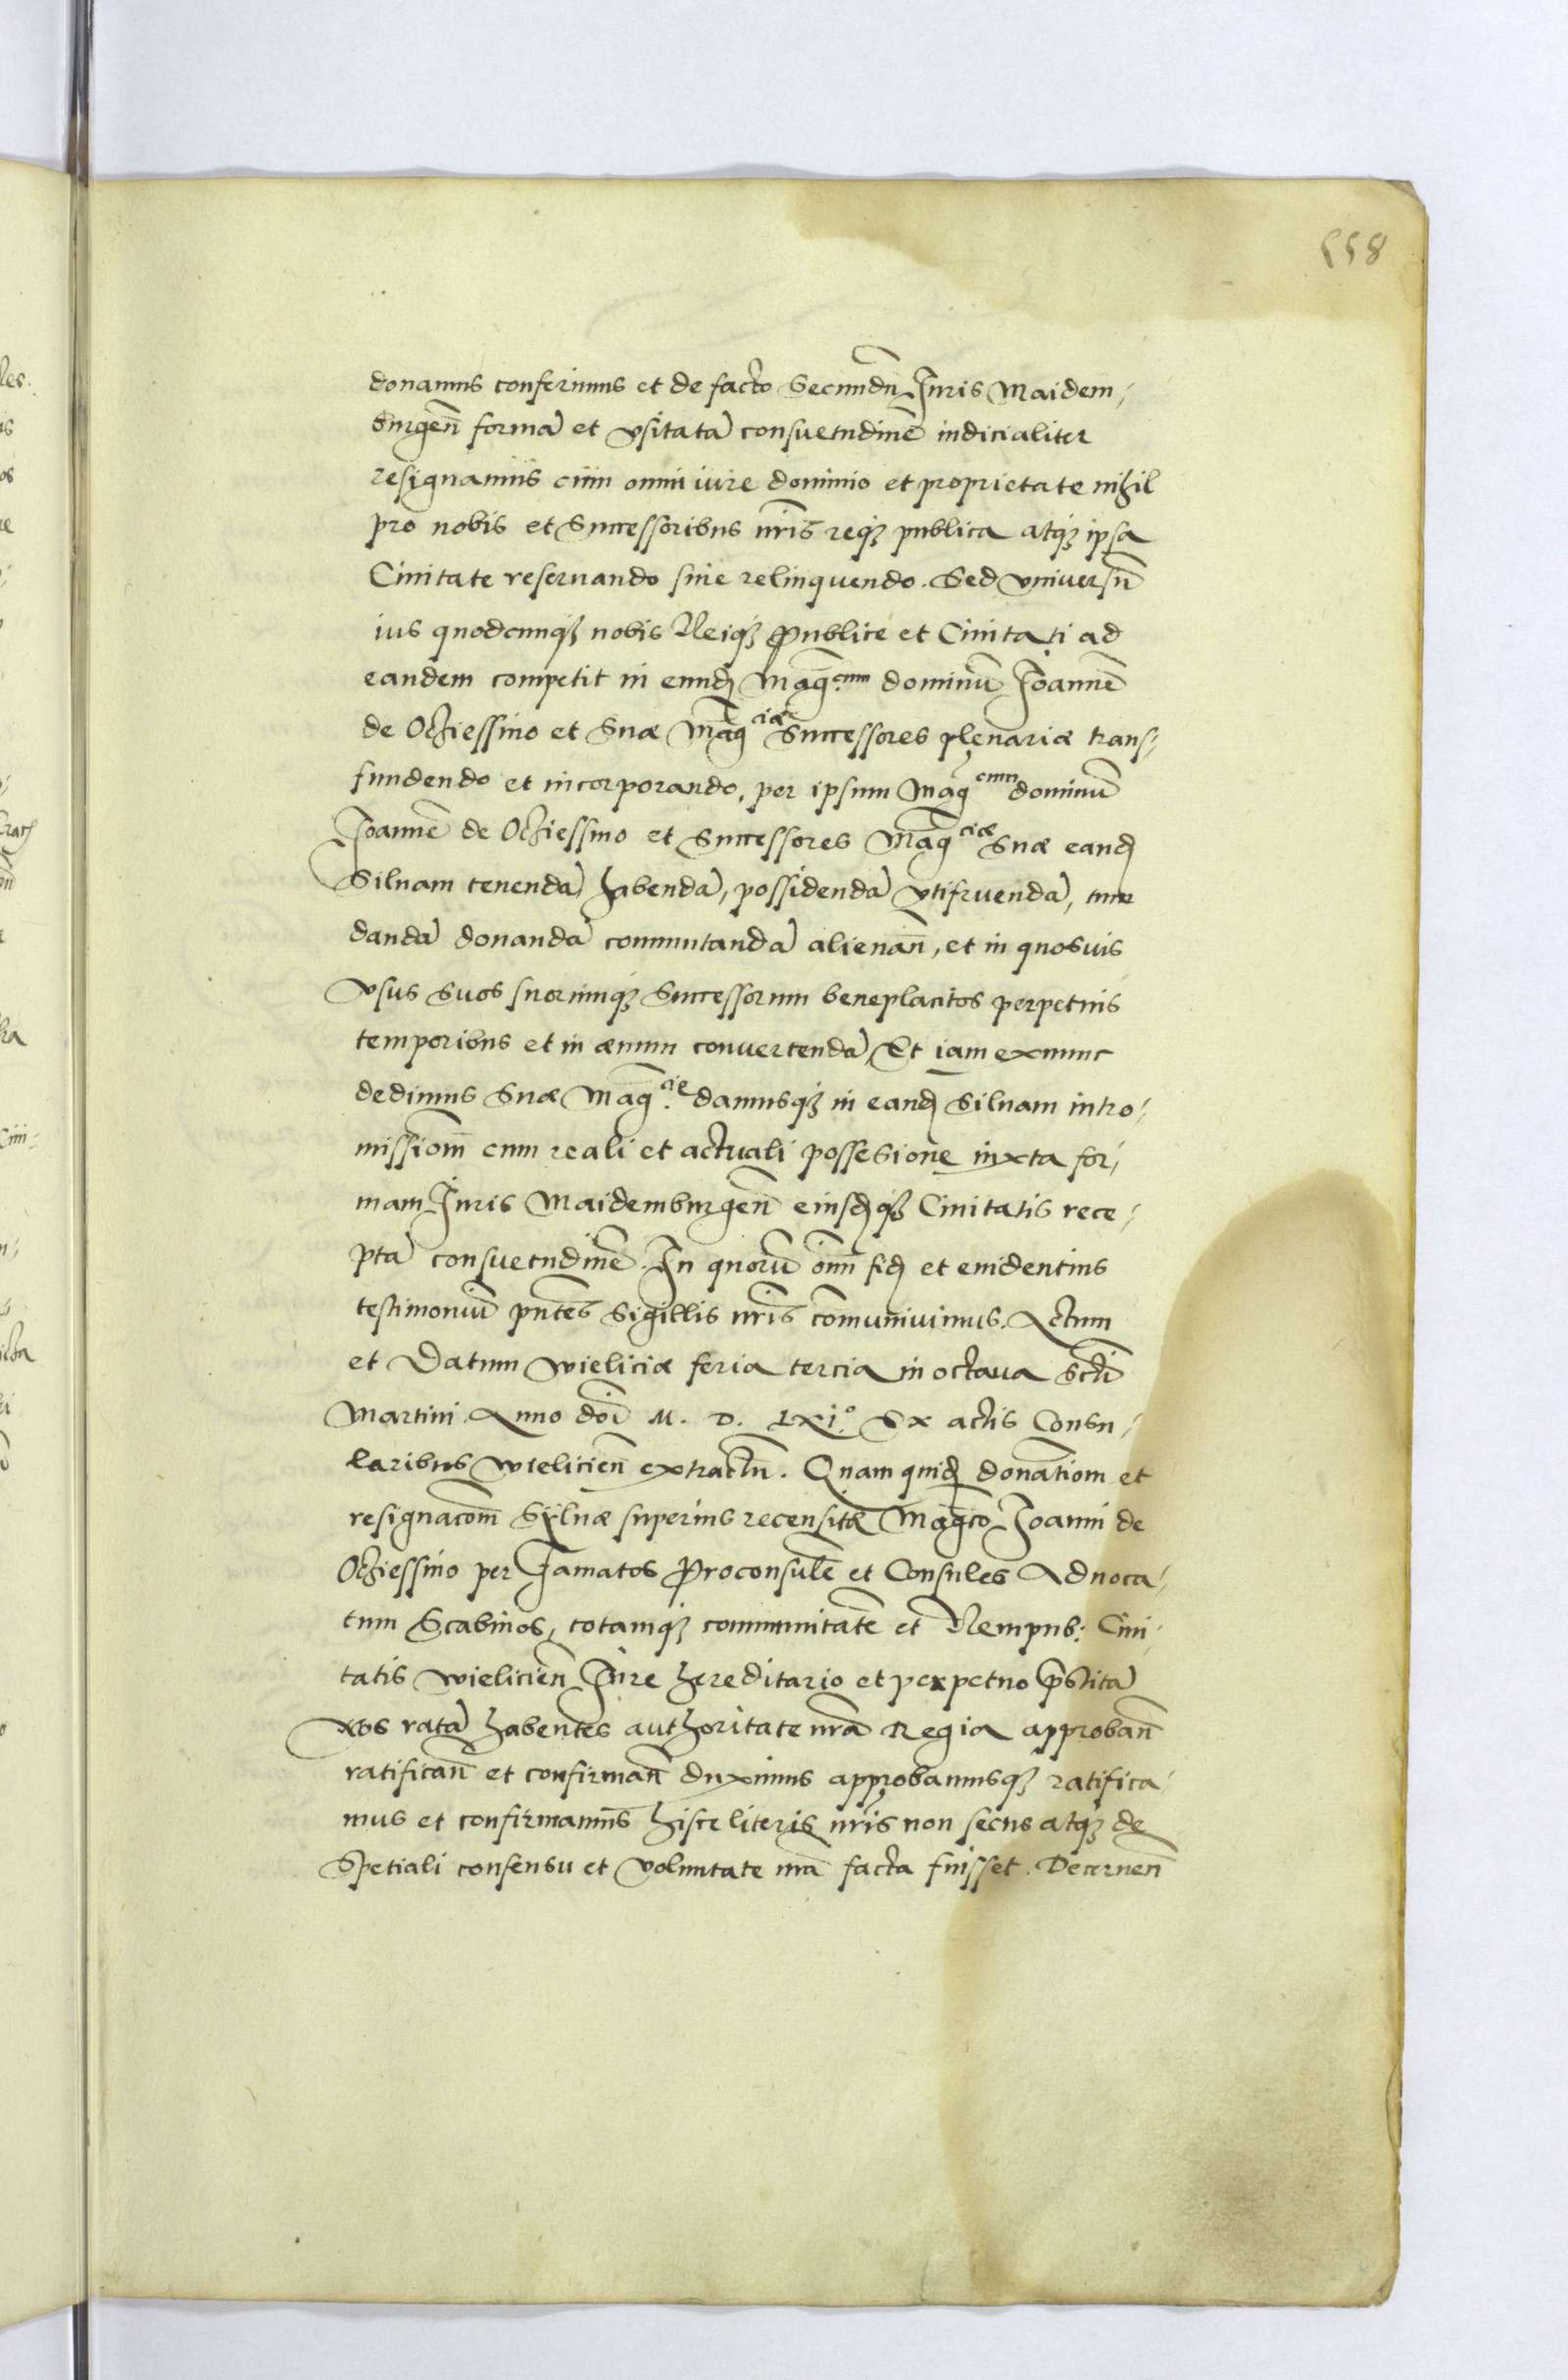 558
donamus conferimus et de facto Secundū Iuris Maidem⸗
burgeñ formā et vsitatā consuetudinē iudicialiter
resignamus cum omni iure dominio et proprietate nihil
pro nobis et Successoribus nr̃is reiq; publica atq; ipsa
Ciuitate reseruando siue relinquendo. Sed vniversū
ius quodcunq; nobis Reiq; Publice et Ciuitati ad
eandem competit in eund̨ Mag.cum dominū Joannē
de Ocziessino et Suæ Mag.ciæ Successores plenariæ trans⸗
fundendo et incorporando, per ipsum Mag.cum dominū
Joannē de Ocziessino et Successores Mag.ciæ Suæ eand̨
Siluam tenendā, habendā, possidendā vtifruendā,
dandā donandā commutandā alienañ, et in quosuis
vsus suos suorumq; Successorum beneplacitos perpetuis
temporibus et in æuum convertendā, Et iam exnunc
dedimus Suæ Mag.cie damusq; in eand̨ Siluam intro⸗
missiom̃ cum reali et actuali possesione iuxta for⸗
mam Iuris Maidemburgeñ eiusd̨q; Ciuitatis rece⸗
ptā consuetudinē. In quorū om̃ fid̨ et euidentius
testimoniū pñtes Sigillis nr̃is com̃univimus. Actum
et Datum Wieliciæ feria tercia in octaua Sct̃i
Martini Anno dñi M. D. LXi.° Ex actis Consu⸗
laribus Wielicieñ extractū. Quam quid̨ donatiom̃ et
resignacom̃ Sylvæ superius recensitæ Magco Joanni de
Ocziessino per famatos Proconsulē et Consules Aduoca⸗
tum Scabinos, totamq; communitatē et Rempub: Ciui⸗
tatis Wielicieñ Iure hereditario et perpetuo p̃stitā
Nos ratā habentes authoritate nr̃a Regia approbañ
ratificañ et confirmañ duximus approbamusq; ratifica⸗
mus et confirmamus hisce literis nr̃is non secus atq; de
Spetiali consensu et voluntate nr̃a facta fuisset. Decerneñ